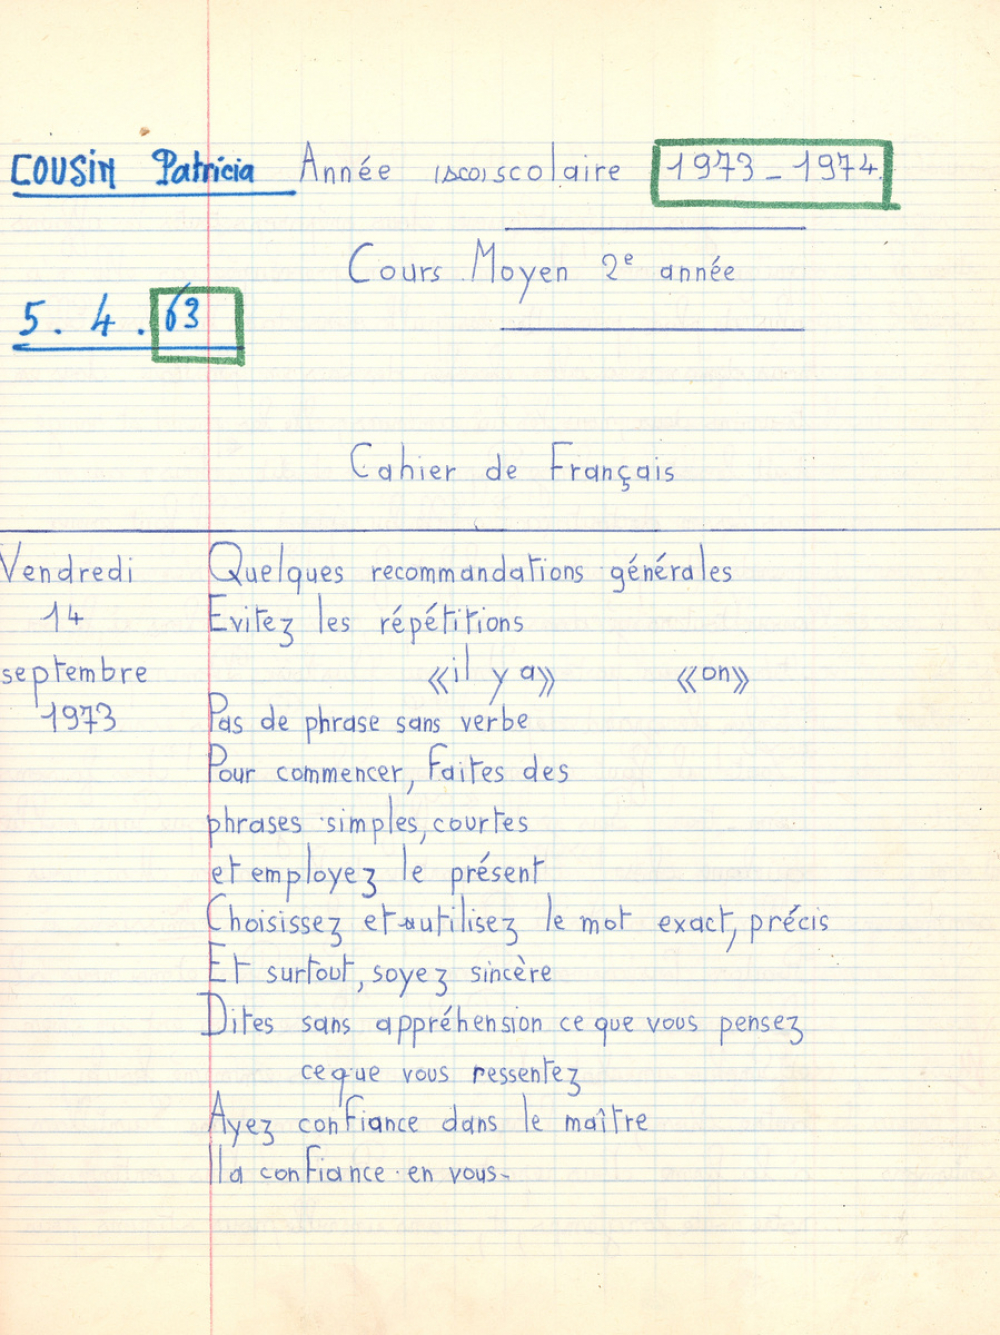 COUSIN Patricia Année (sco) scolaire 1973_1974.
Cours Moyen 2e année
5. 4. 63
Cahier de Français
Vendredi
14
septembre
1973
Quelques recommandations générales
Evitez les répétitions
«il y a» «on»
Pas de phrase sans verbe
Pour commencer, faites des
phrases simples, courtes
et employez le présent
Choisissez et utilisez le mot exact, précis
Et surtout, soyez sincère
Dites sans appréhension ce que vous pensez
ce que vous ressentez
Ayez confiance dans le maître
Il a confiance en vous-